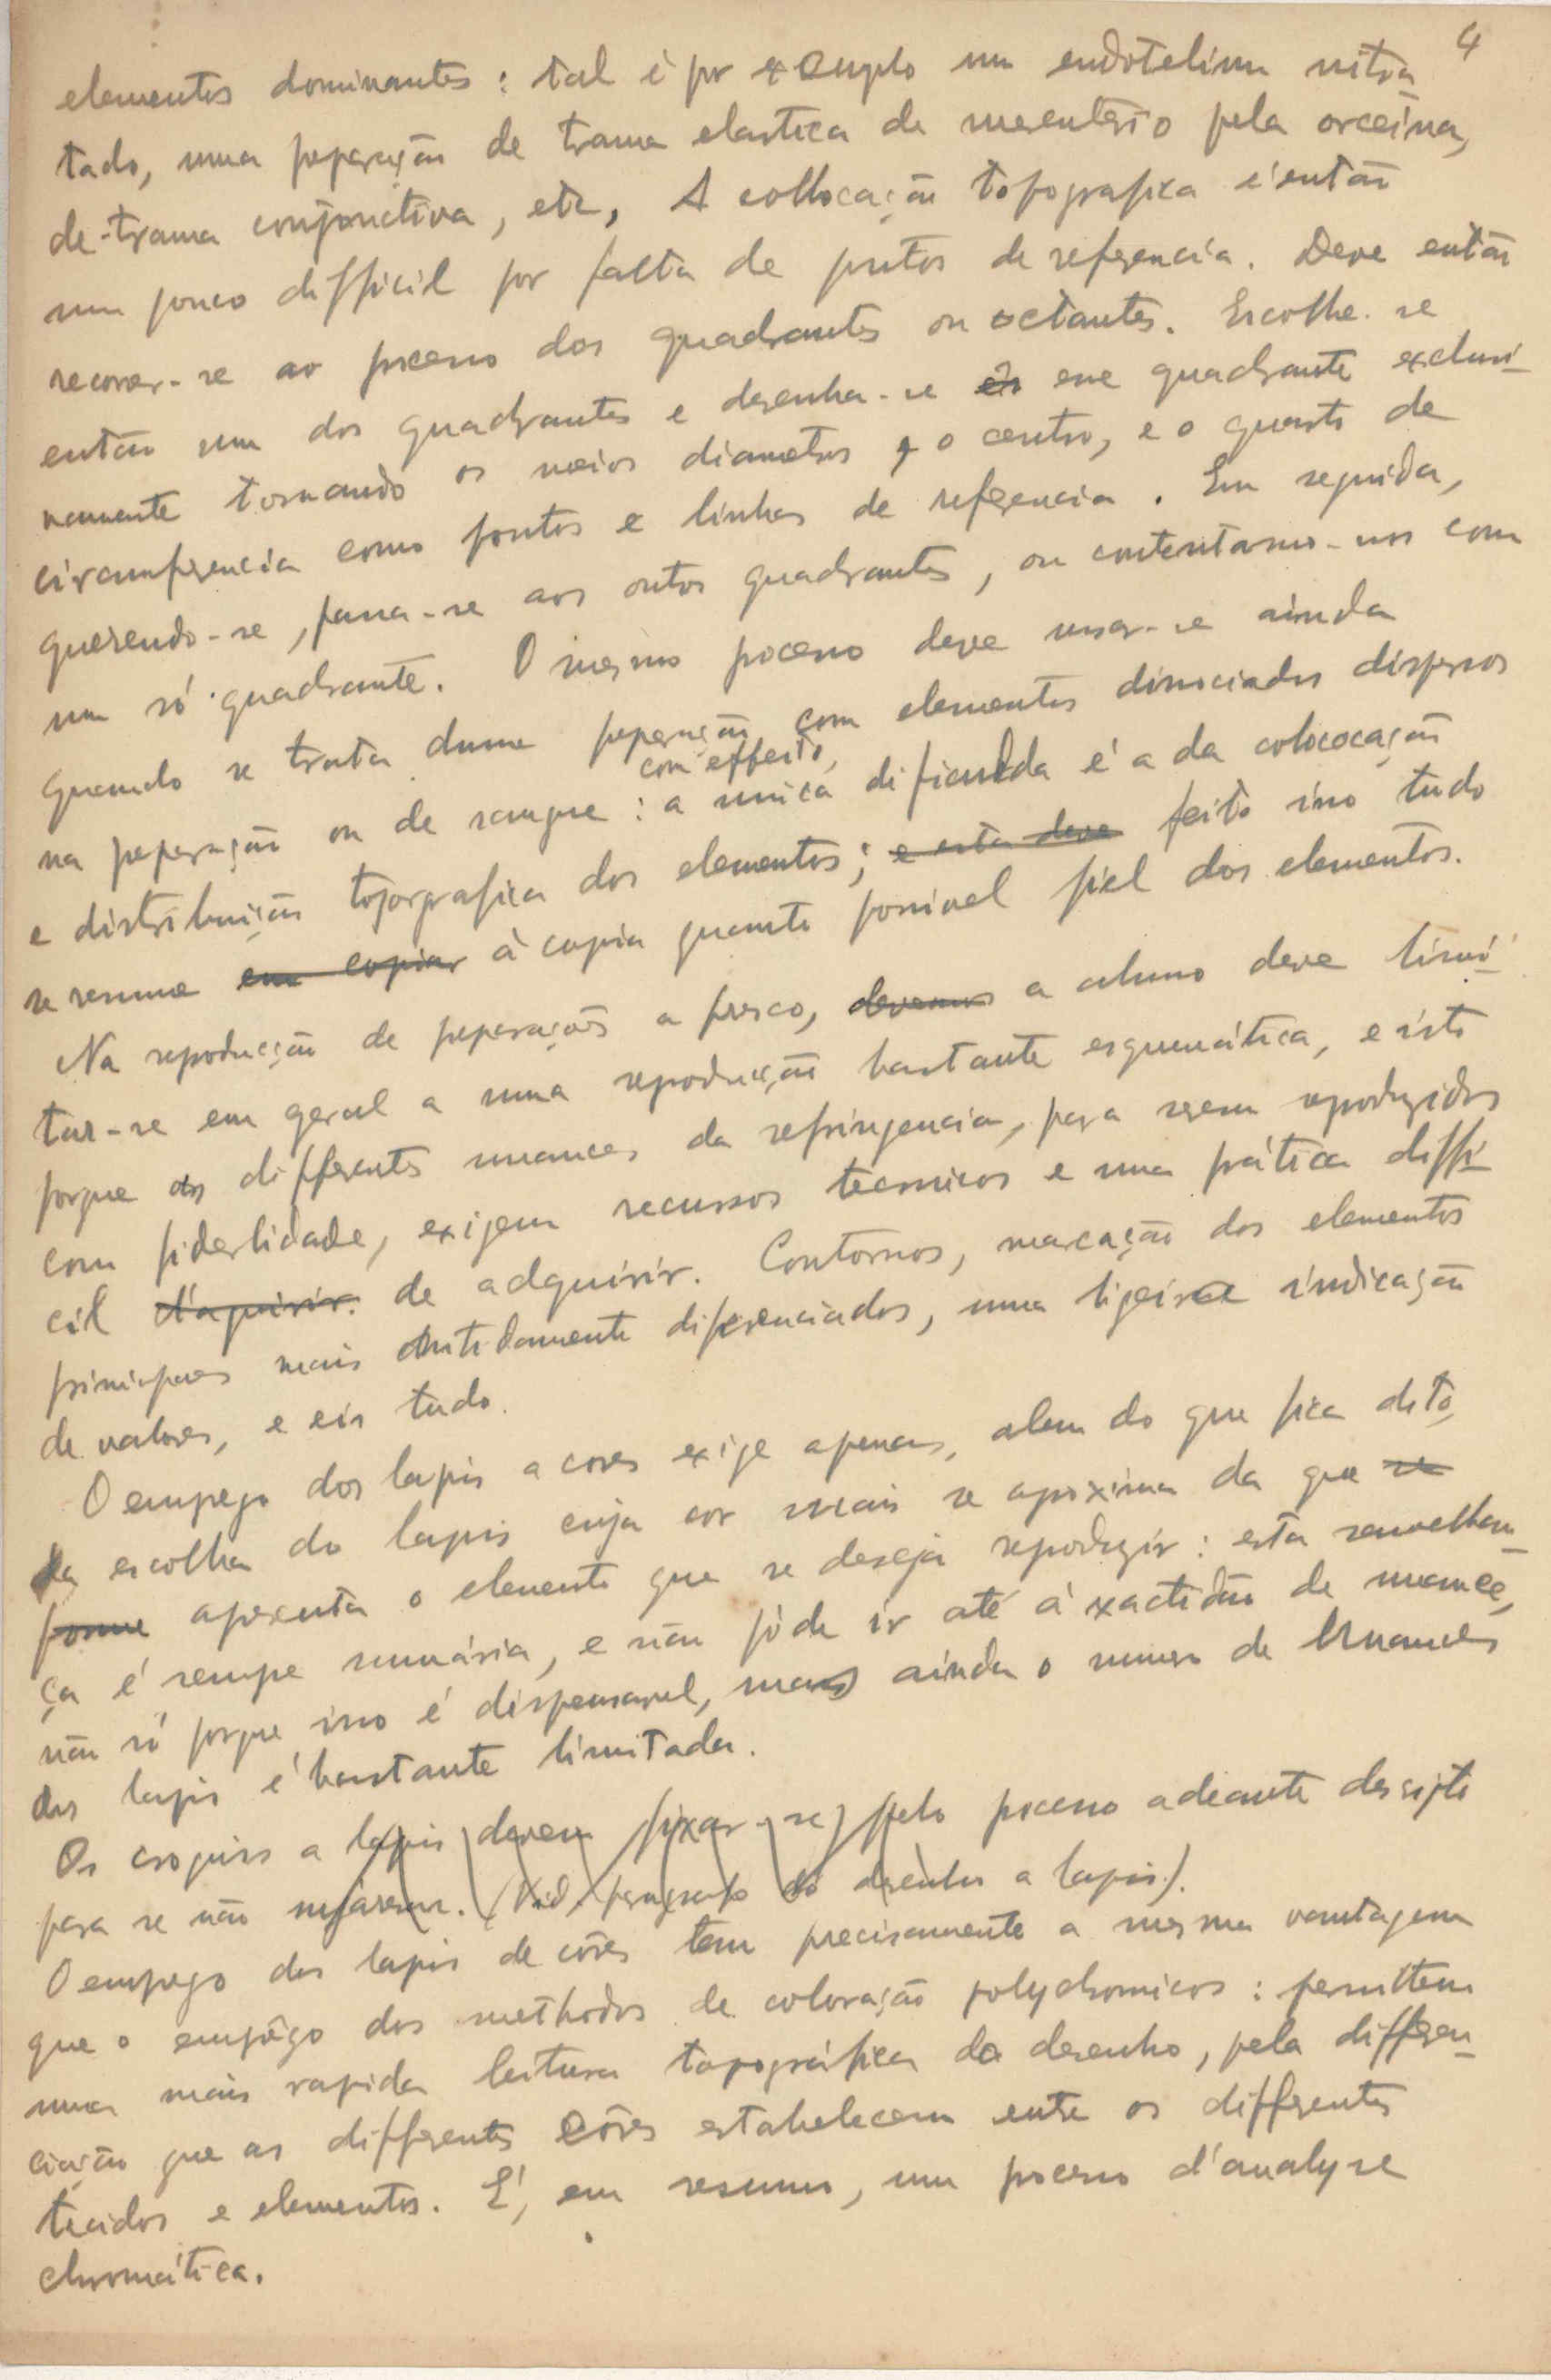 4
elementos dominantes : tal é por exemplo um endotelium nitra-
tado, uma preparação de trama elastica de mesenterio pela orceina,
de trama conjonctiva, etc, A collocação topografica é então
um pouco difficil por falta de pontos de referencia. Deve então
recorrer-se ao processo dos quadrantes ou octantes. Escolhe-se
então um dos quadrantes e desenha-se esse quadrante exclusi-
vamente tornando os meios diametros e o centro, e o quarto de
circumferencia como pontos e linhas de referencia. Em seguida,
querendo-se, passa-se aos outros quadrantes, ou contentamo-nos com
um só quadrante. O mesmo processo deve usar-se ainda
quando se trata duma preparação com elementos dissociados dispersos
com effeito,
na preparação ou de sangue : a unica dificulda é a da colococação
e distribuição toporgrafica dos elementos; e esta deve feito isso tudo
se resume em copiar à copia quanto possivel fiel dos elementos.
Na reproducção de preparações a fresco, devemos o aluno deve limi-
tar-se em geral a uma reproducção bastante esquemática, e isto
porque as differentes nuances da refringencia, para serem reproduzidas
com fiderlidade, exigem recursos tecnicos e uma prática diffi-
cil d'aquirir. de adquirir. Contornos, marcação dos elementos
principaes mais nitidamente diferenciados, uma ligeira indicação
de valores, e eis tudo.
O emprego dos lapis a cores exige apenas, alem do que fica dito,
da escolha do lapis cuja cor mais se aproxima da que se
apresenta o elemento que se deseja reproduzir : esta semelhan-
ça é sempre sumária, e não póde ir até à exactidão de nuance,
não só porque isso é dispensavel, mas ainda o numero de nuances
dos lapis é bastante limitada.
Os croquis a lapis devem fixar-se pelo processo adeante descripto
para se não sujarem. (Vid. paragrapho do desenho a lapis).
O emprego dos lapis de côres tem precisamente a mesma vantagem
que o emprêgo dos methodos de coloração polychromicos : permittem
uma mais rapida leitura topográfica do desenho, pela differen-
ciação que as differentes côres estabelecem entre os differentes
tecidos e elementos. É, em resumo, um processo d'analyse
chromática.